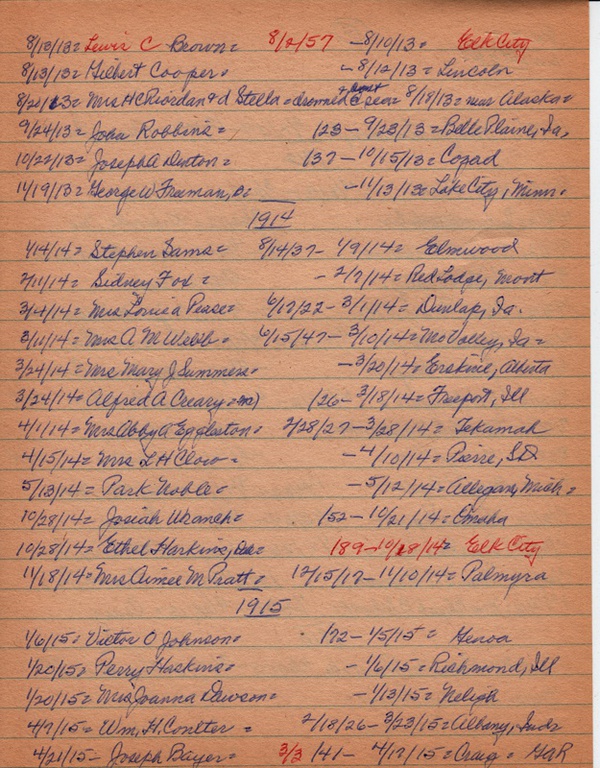 8/13/13= Lewis C Brown= 8/2/57 -8/10/13= Elk City
8/13/13= Gilbert Cooper= -8/12/13= Lincoln
8/20/13= Mrs H C Riordan + d Stella = drowned @ sea= 8/18/13= near Alaska=
9/24/13= John Robbins= /23- 9/23/13= Belle Plaine, Ia.
10/22/13= Joseph A Denton= /37- 10/15/13= Copad
11/19/13= George W Freeman, -11/13/13= Lake City, Minn.
1914
1/14/14= Stephen Sams= 8/14/37- 1/9/14= Elmwood
2/11/14= Sidney Fox= - 2/7/14= Red Lodge, Mont
3/4/14= Mrs Louisa Pease= 6/17/22- 3/1/14= Dunlap, Ia.
3/11/14= Mrs A M Webb= 6/15/47- 3/10/14= Mo Valley, Ia=
3/24/14= Mrs Mary J Summers= -3/20/14= Erskine, Alberta
3/24/14= Alfred A Creary= /26- 3/18/14= Freeport, Ill
4/1/14= Mrs Abby A Eggleston= 2/28/27- 3/28/14= Tekamah
4/15/14= Mrs L H Clow= -4/10/14= Pierre, SD
5/13/14= Park Noble= -5/12/14= Allegan, Mich=
10/28/14= Josiah /52- 10/21/14= Omaha
10/28/14= Ethel Harkins, 189-10/18/14= Elk City
11/18/14= Mrs Aimee M Pratt= 12/15/17- 11/10/14= Palmyra
1915
1/6/15= Victor O Johnson= /72- 1/5/15= Genoa
1/20/15= Perry Haskins= - 1/6/15= Richmond, Ill
1/20/15= Mrs Joanna Dawson= -1/13/15= Neligh
4/7/15= Wm. H. Coulter= 2/18/26- 3/23/15= Albany, Indr
4/21/15- Joseph Bayer= 3/3 /41- 4/17/15= Craig= GAR